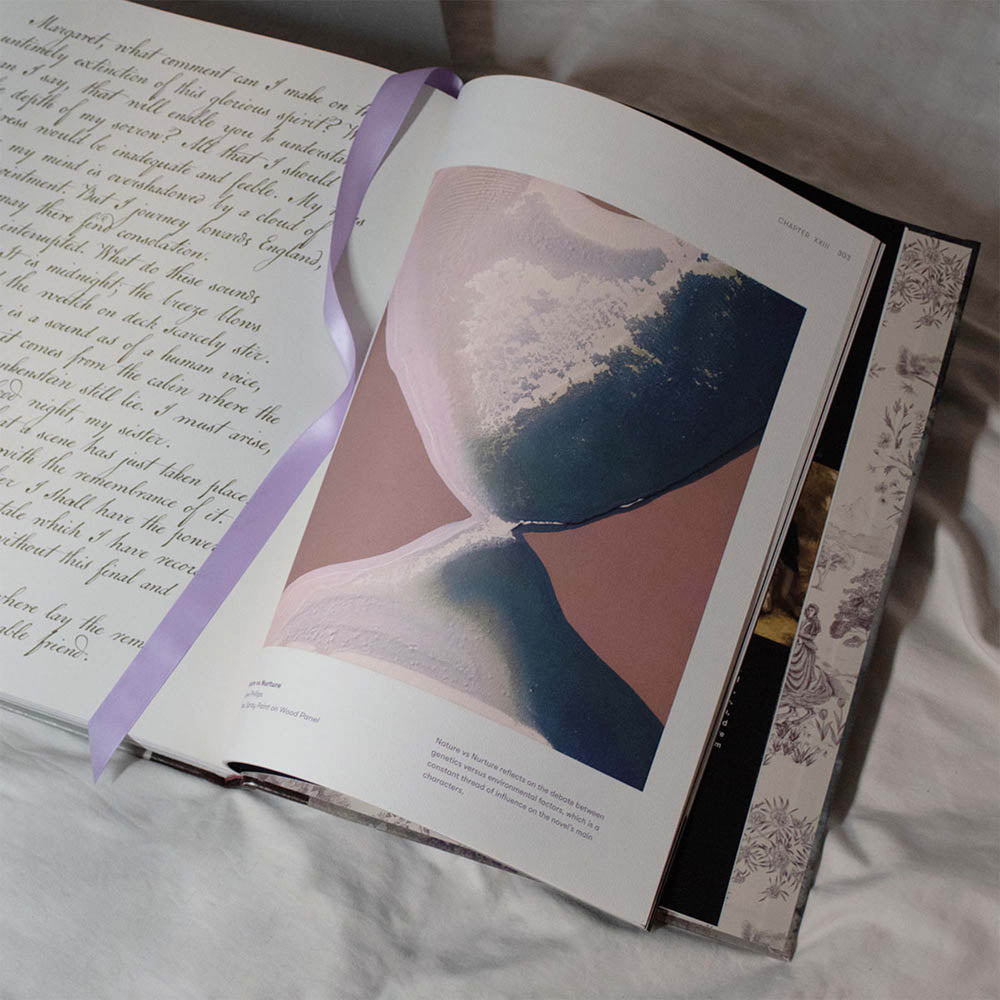 Margaret, what comment can I make on
untimely extinction of this glorious spirit?
I say, that will enable you to understan
depth of my sorrow? All that I should
ress would be inadequate and feeble. My
my mind is overshadowed by a cloud of
ointment. But I journey towards England,
may there find consolation.
interrupted. What do these sounds
It is midnight; the breeze blows
the watch on deck scarcely stir.
is a sound as of a human voice,
it comes from the cabin where the
nkenstein still lie. I must arise,
night, my sister.
at a scene has just taken place
with the remembrance of it.
I shall have the power
tale which I have recor
without this final and
where lay the rem
able friend.
CHAPTER XXIII 303
vs Nurture
Phillips
Spray Paint on Wood Panel
Nature vs Nurture reflects on the debate between
genetics versus environmental factors, which is a
constant thread of influence on the novel's main
characters.